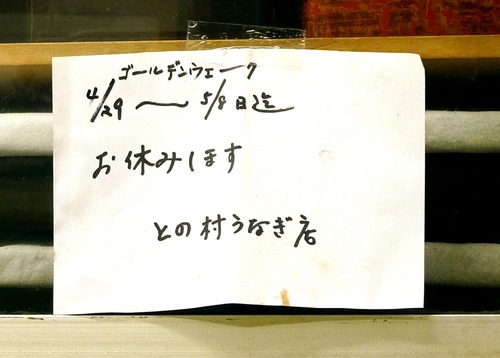 ゴールデンウェーク
4/29 〜 5/8日迄
お休みします
との村うなぎ店